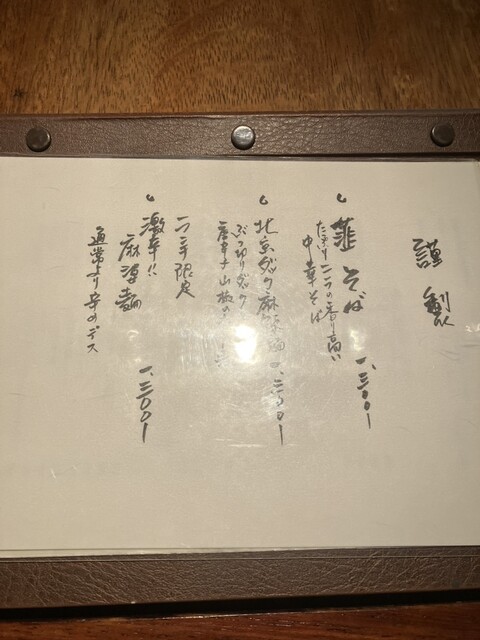 謹製
韮そば 一、三〇〇ー
たっぷりニラの香り高い
中華そば
北京ダック麻辣麺
ぶつ切りダック
唐辛子山椒の
ランチ限定
激辛!! 麻婆麺 一、三〇〇ー
通常より辛めデス